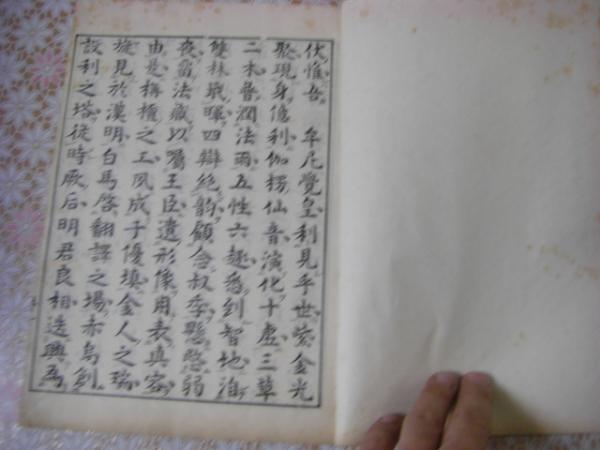 伏惟吾 牟尼覺皇利見乎世紫金光
聚現身億利伽楞仙音演化十虛三草
二木普潤法雨五性六趣悉到智地洎
雙林戢暉四辯絶韵顧念叔季懸愍弱
喪留法藏以囑王臣遺形像用表真容
由是栴檀之工夙成于優填金人之瑞
旋見於漢明白馬啓翻譯之場赤烏創
設利之塔從時厥后明君良相迭興爲